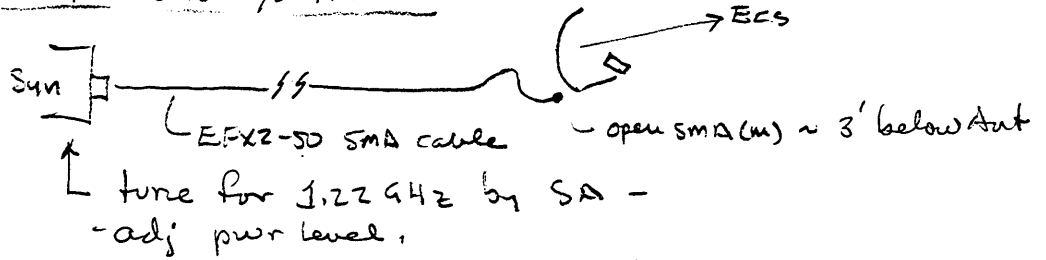 → ECS
Syn
EFX2-50 SMA cable
open SMA(m) ~ 3' below Ant
tune for 1.22 GHz by SA -
- adj pwr level.